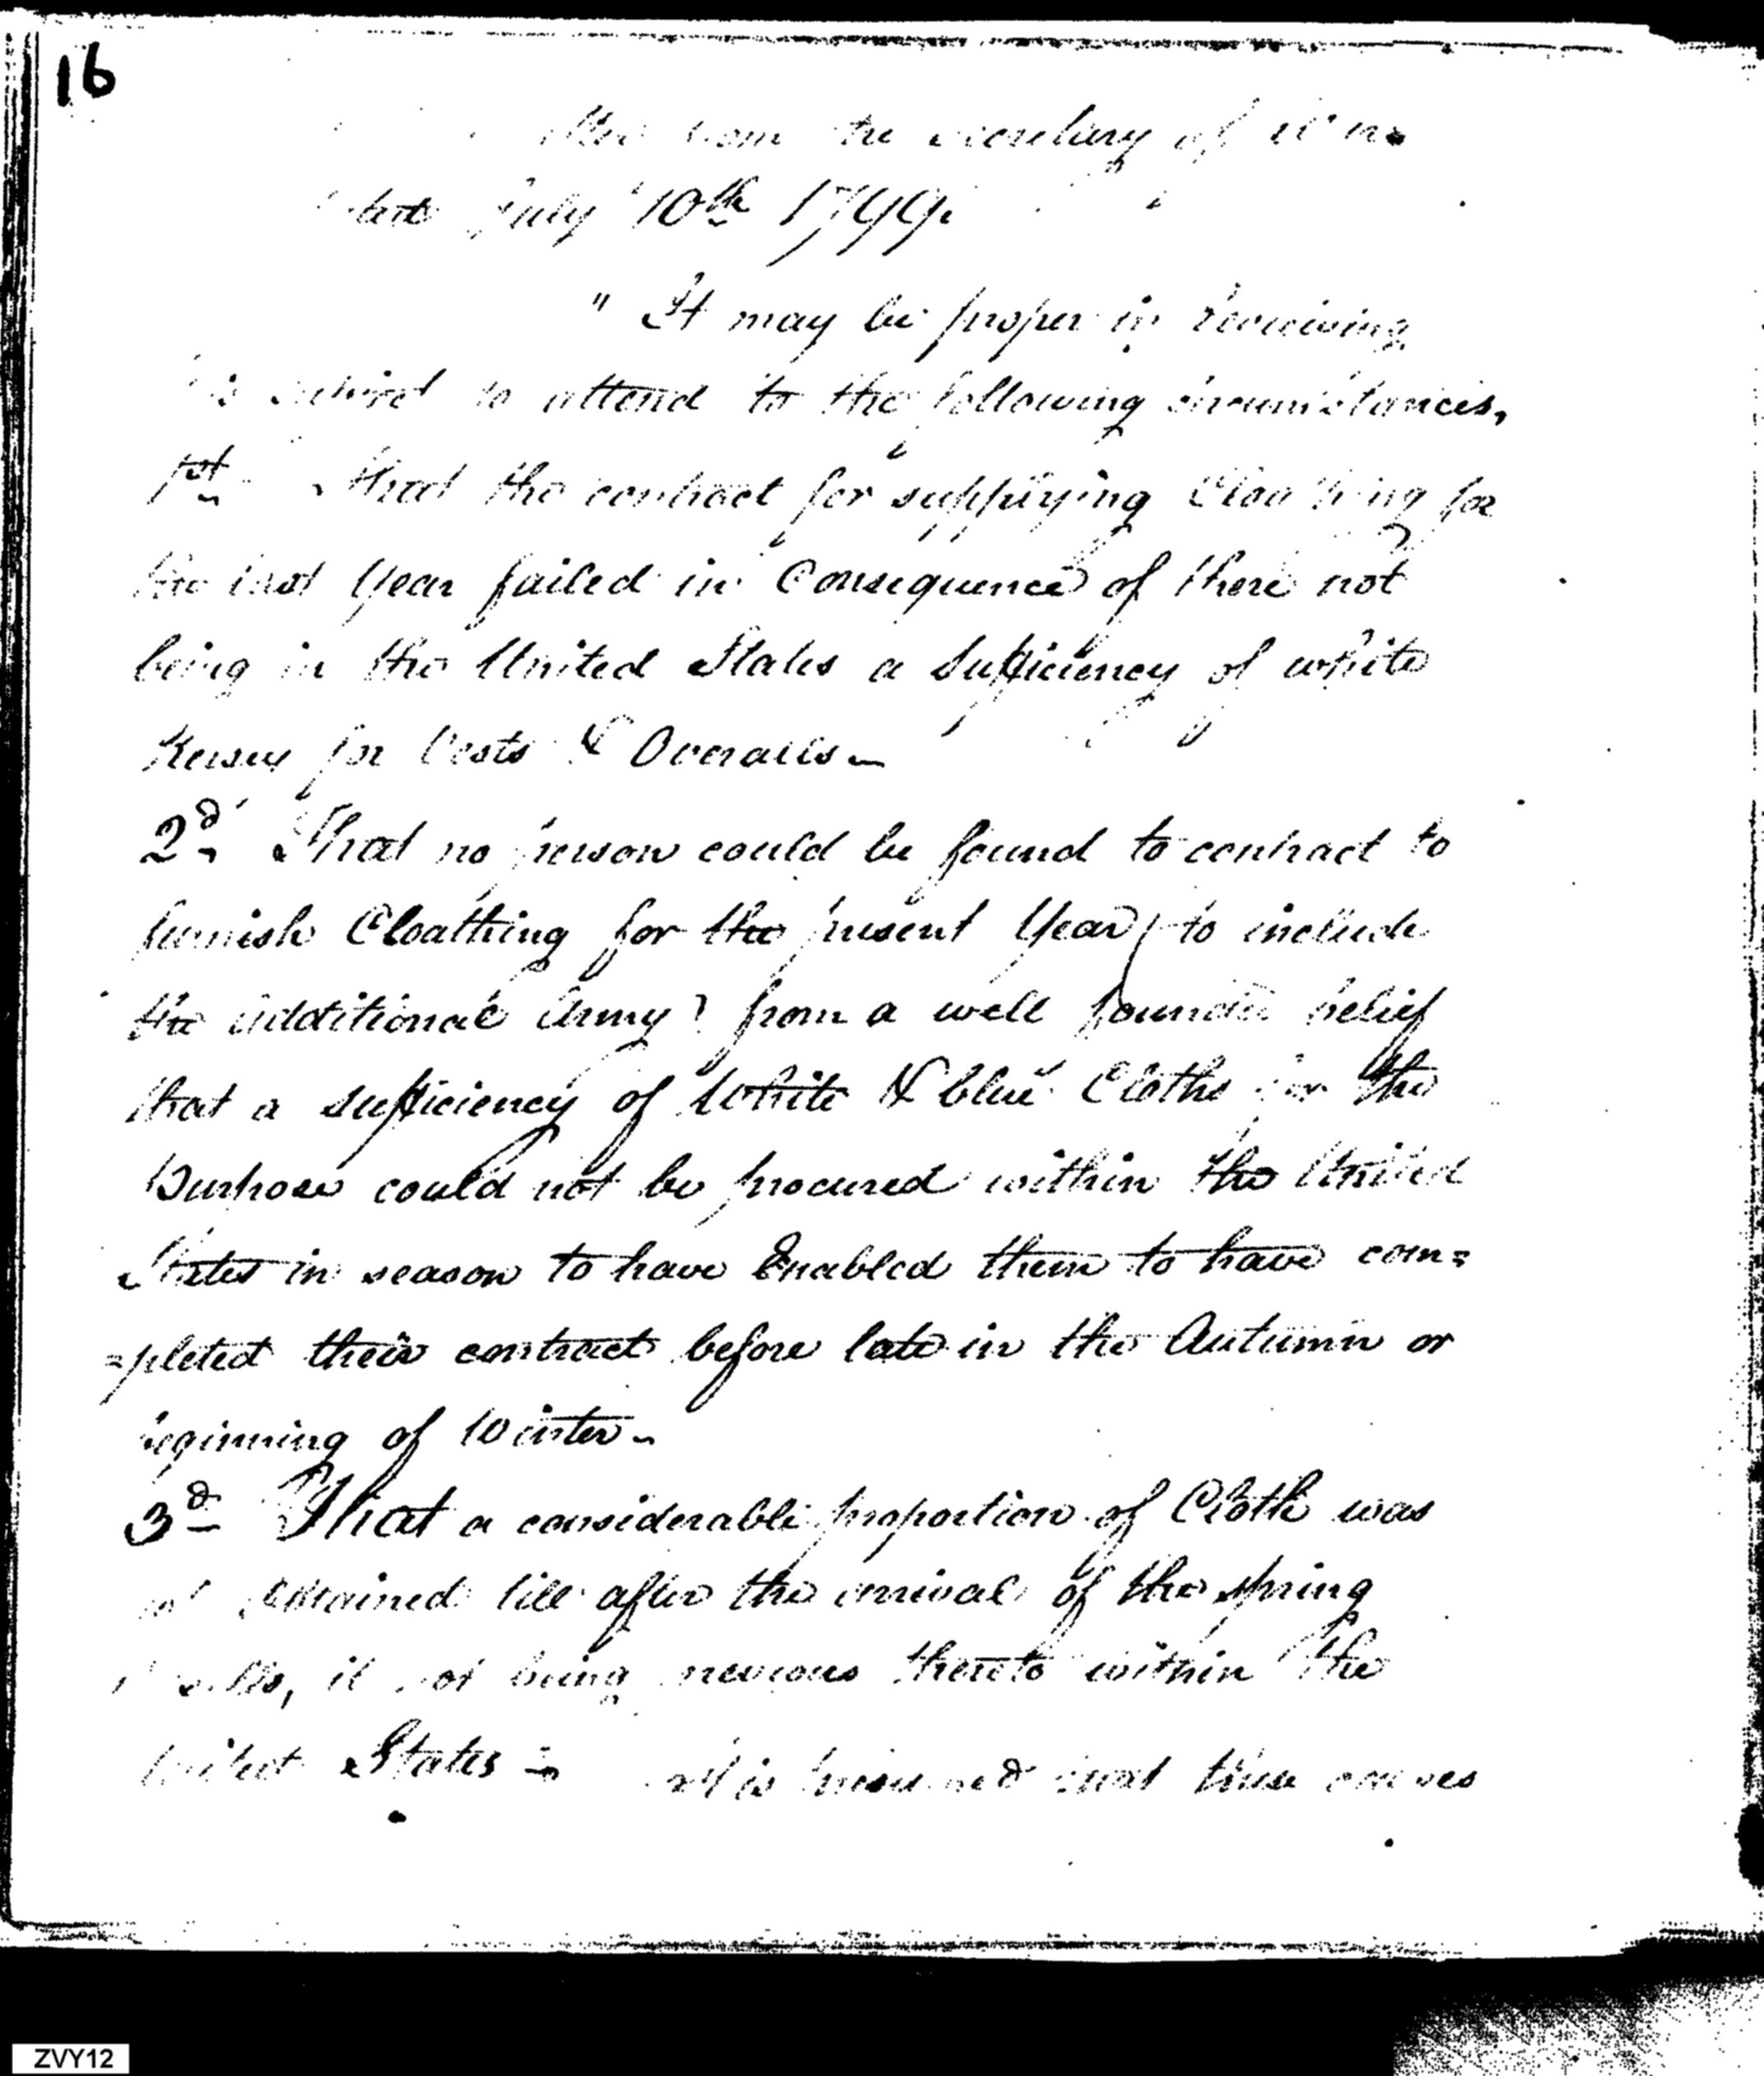 16
from the Secretary of War
date July 10th 1799.
" It may be proper in reviewing
this subject to attend to the following circumstances,
1st That the contract for supplying Cloathing for
the last Year failed in Consequence of there not
being in the United States a Sufficiency of white
Kersey for Vests & Overalls—
2d That no person could be found to contract to
furnish Cloathing for the present Year, to include
the additional Army, from a well founded belief
that a sufficiency of White & blue Cloths for the
Purpose could not be procured within the United
States in season to have Enabled them to have com=
=pleted their contract before late in the Autumn or
beginning of Winter—
3d That a considerable proportion of Cloth was
not obtained till after the arrival of the spring
it not being previous thereto within the
United States — It is presumed that these causes
ZVY12